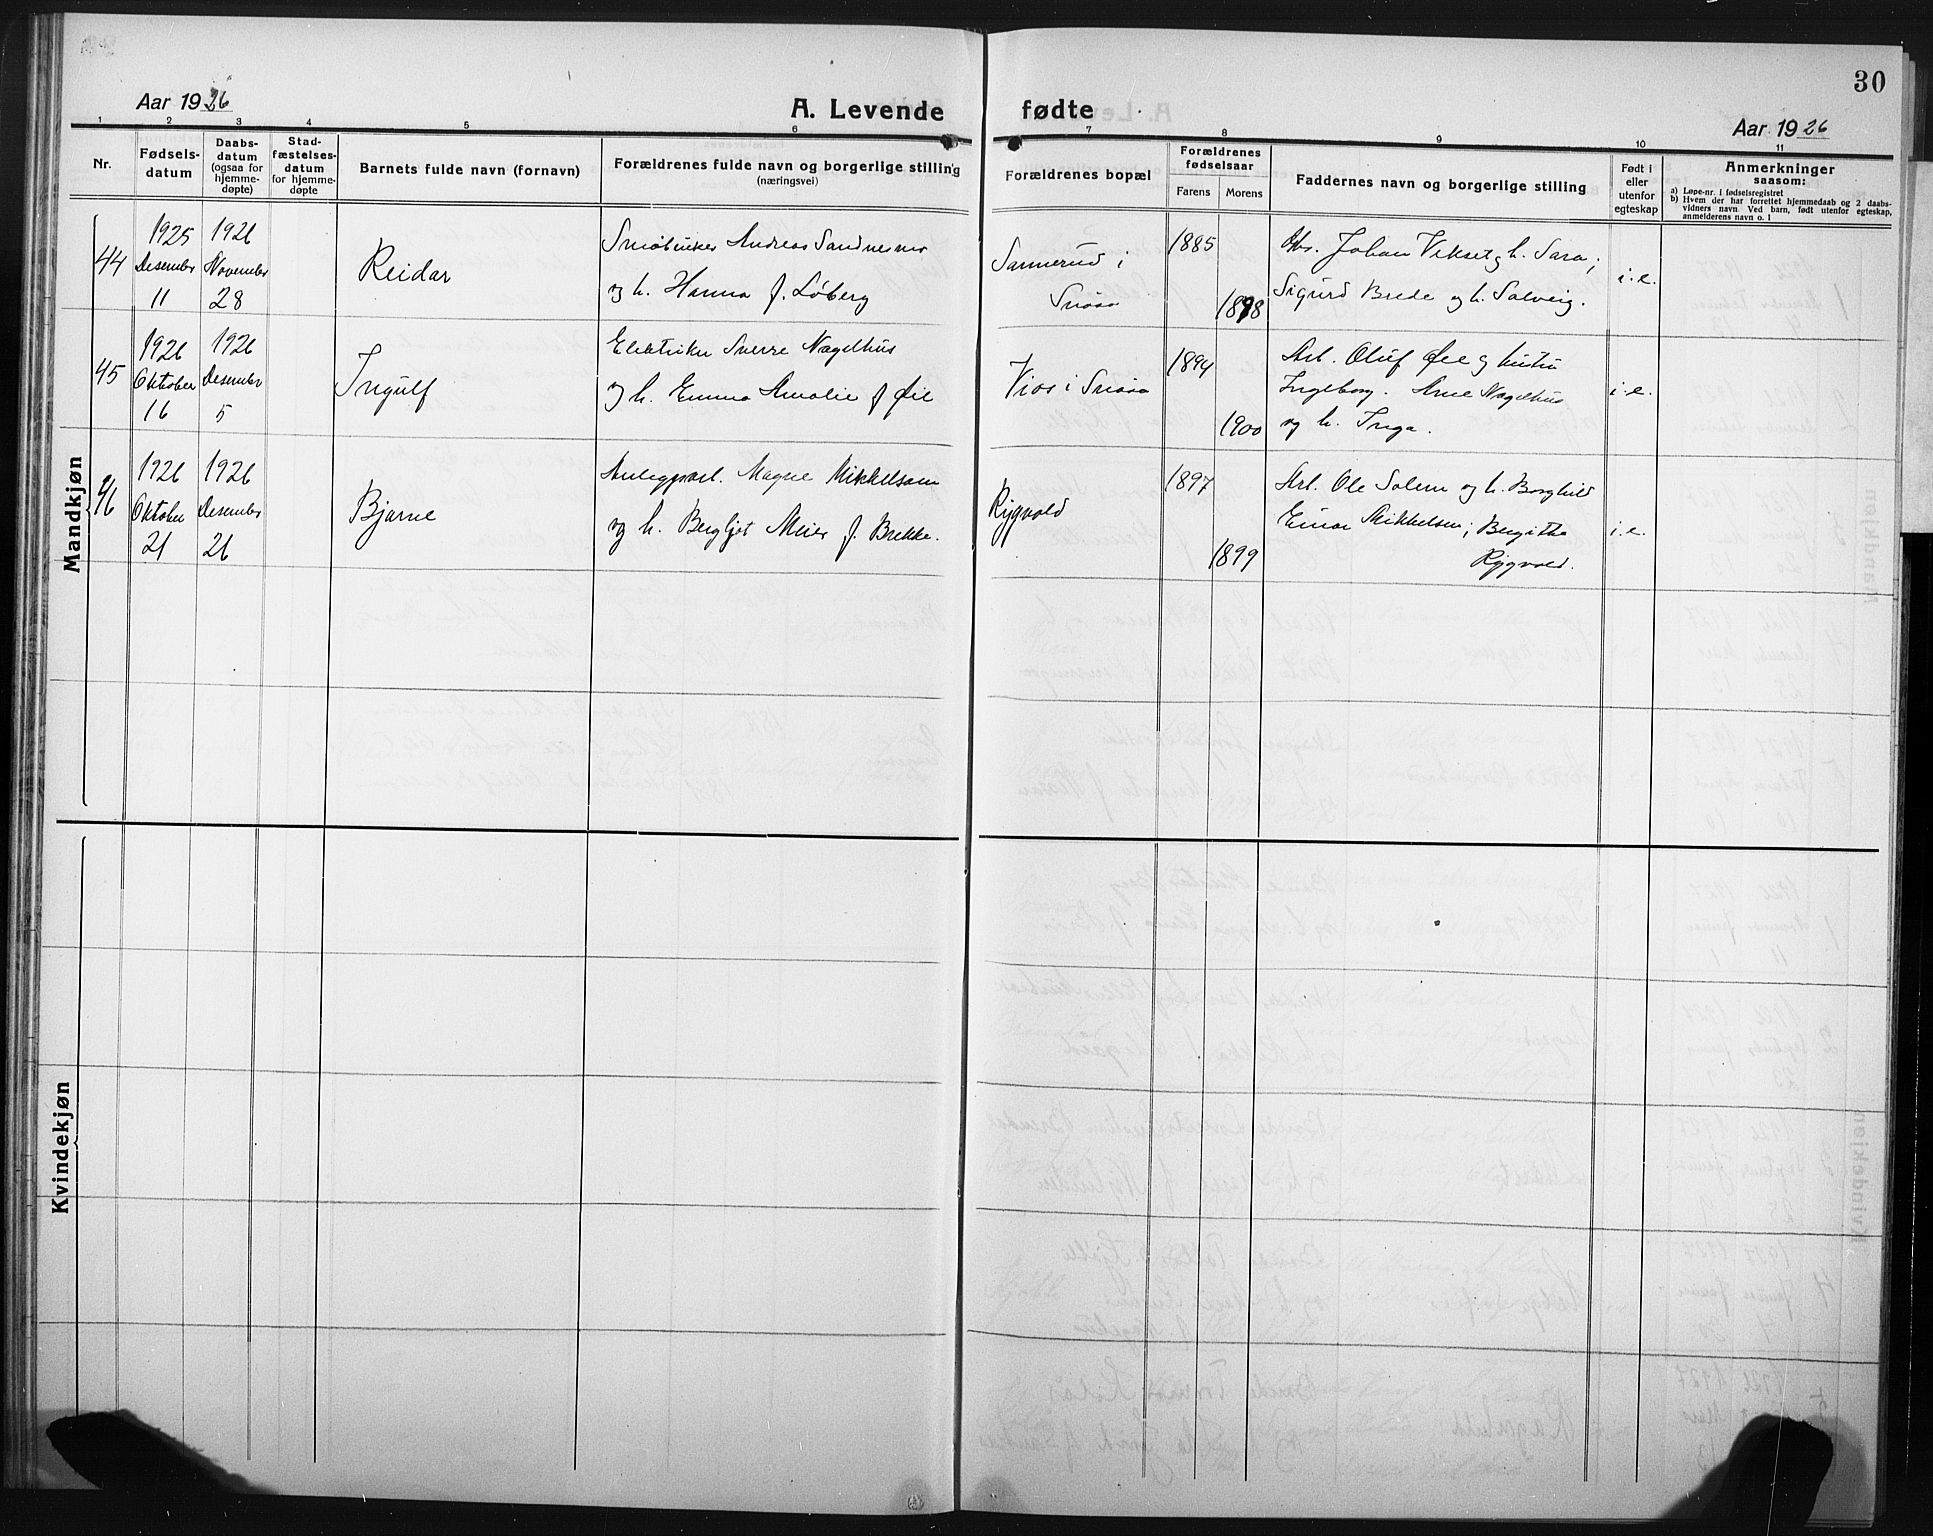 30
Aar 1926
A. Levende fødte
Aar 1926
1 2 3 4 5 6 7 8 9 10 11
Nr.
Fødsels-
datum
Daabs-
datum
(ogsaa for
hjemme-
døpte)
Stad-
fæstelses-
datum
for hjemme-
døpte
Barnets fulde navn (fornavn)
Forældrenes fulde navn og borgerlige stilling
(næringsvei)
Forældrenes bopæl
Forældrenes
fødselsaar
Farens
Morens
Faddernes navn og borgerlige stilling
Født i
eller
utenfor
egteskap
Anmerkninger
saasom:
a) Løpe-nr. i fødselsregistret
b) Hvem der har forrettet hjemmedaab og 2 daabs-
vidners navn. Ved barn, født utenfor egteskap,
anmelderens navn o. l
Mandkjøn
44
1925
Desember
11
1926
November
28
Reidar
Småbruker Andreas Sandnesmo
og h. Hanna f. Løberg
Sannerud i
Snåsa
1885
1898
Gbr. Johan Vekset og h. Sara;
Sigurd Brede og h. Solveig.
i.e.
45
1926
Oktober
16
1926
Desember
5
Ingulf
Elektriker Sverre Nagelhus
og h. Emma Amalie f. Øie
Vios i Snåsa
1894
1900
Arb. Oluf Øie og hustru
Ingeborg. Arne Nagelhus
og h. Inga.
i.e.
46
1926
Oktober
21
1926
Desember
26
Bjarne
Anleggsarb. Magne Mikkelsen
og h. Bergljot Meier f. Brekke.
Rygvold
1897
1899
Arb. Ole Solem og h. Borghild
Einar Mikkelsen; Bergitha
Rygvold.
i.e.
Kvindekjøn